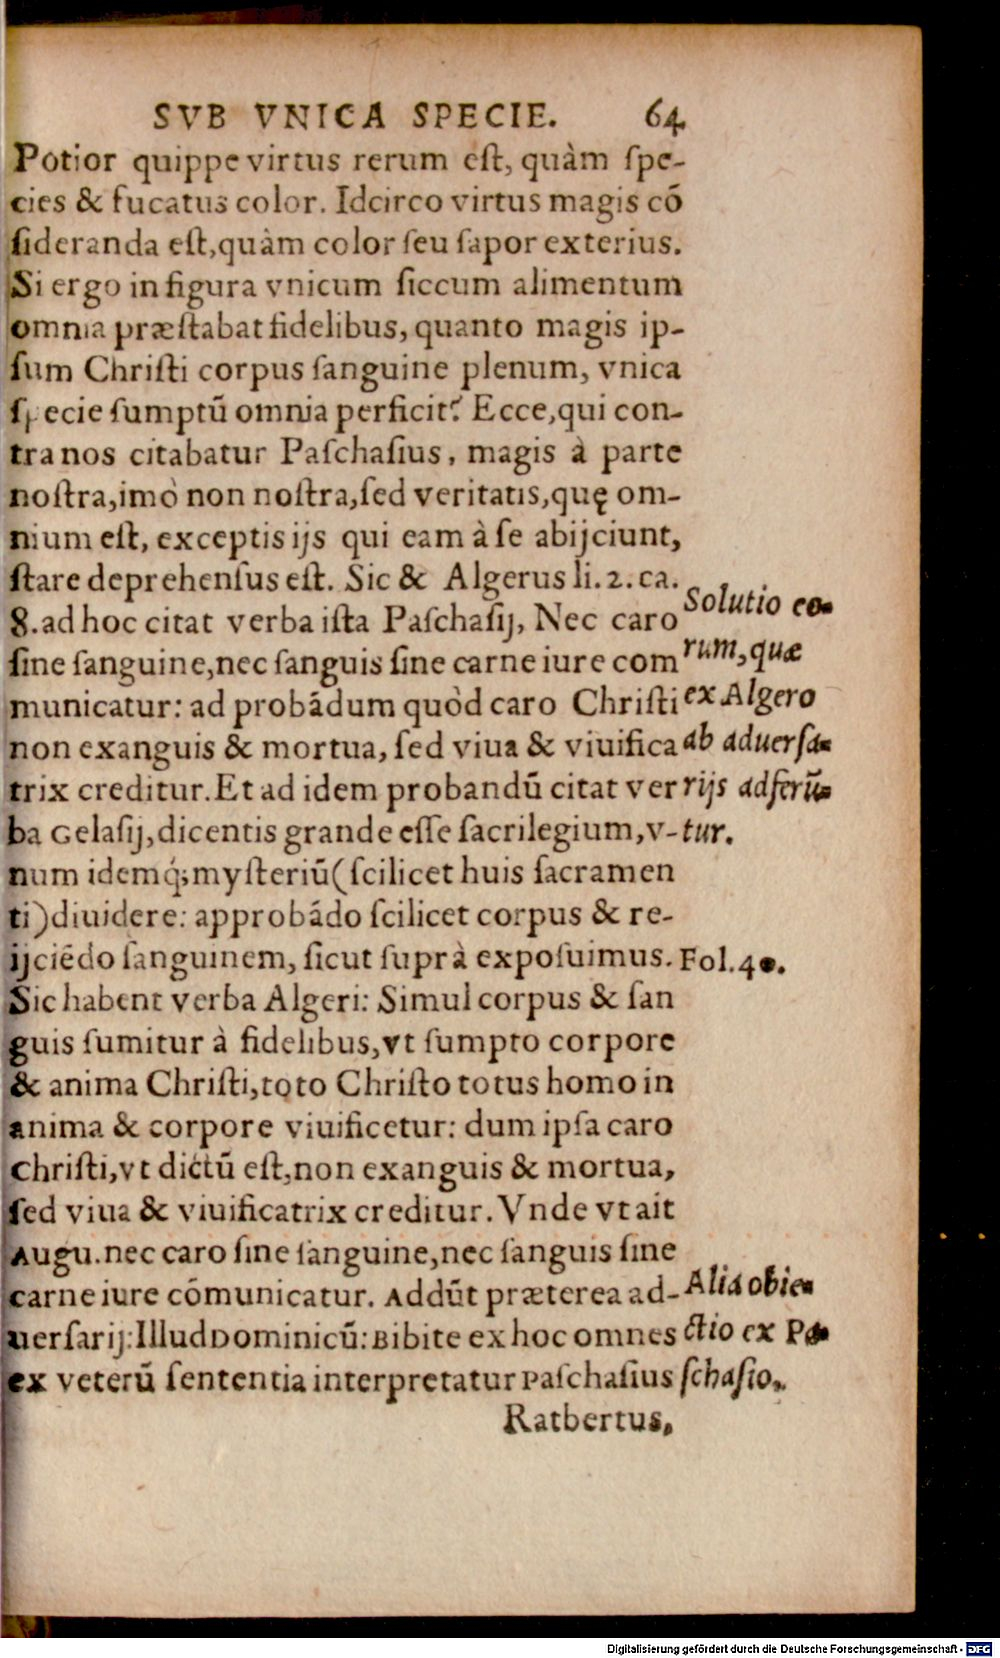 SVB VNICA SPECIE. 64
Potior quippe virtus rerum est, quàm spe-
cies & fucatus color. Idcirco virtus magis cō
sideranda est, quàm color seu sapor exterius.
Si ergo in figura vnicum siccum alimentum
omnia præstabat fidelibus, quanto magis ip-
sum Christi corpus sanguine plenum, vnica
specie sumptū omnia perficit? Ecce, qui con-
tra nos citabatur Paschasius, magis à parte
nostra, imò non nostra, sed veritatis, quę om-
nium est, exceptis ijs qui eam à se abijciunt,
stare deprehensus est. Sic & Algerus li. 2. ca.
8. ad hoc citat verba ista Paschasij, Nec caro
sine sanguine, nec sanguis sine carne iure com
municatur: ad probādum quòd caro Christi
non exanguis & mortua, sed viua & viuifica
trix creditur. Et ad idem probandū citat ver
ba Gelasij, dicentis grande esse sacrilegium, v-
num idemq́; mysteriū (scilicet huis sacramen
ti) diuidere: approbādo scilicet corpus & re-
ijciēdo sanguinem, sicut suprà exposuimus.
Sic habent verba Algeri: Simul corpus & san
guis sumitur à fidelibus, vt sumpto corpore
& anima Christi, toto Christo totus homo in
anima & corpore viuificetur: dum ipsa caro
Christi, vt dictū est, non exanguis & mortua,
sed viua & viuificatrix creditur. Vnde vt ait
Augu. nec caro sine sanguine, nec sanguis sine
carne iure cōmunicatur. Addūt præterea ad-
uersarij: Illud Dominicū: Bibite ex hoc omnes
ex veterū sententia interpretatur Paschasius
Ratbertus,
Solutio eo-
rum, quæ
ex Algero
ab aduersa-
rijs adferū-
tur.
Fol. 40.
Alia obie-
ctio ex Pa-
schasio.
Digitalisierung gefördert durch die Deutsche Forschungsgemeinschaft - DFG